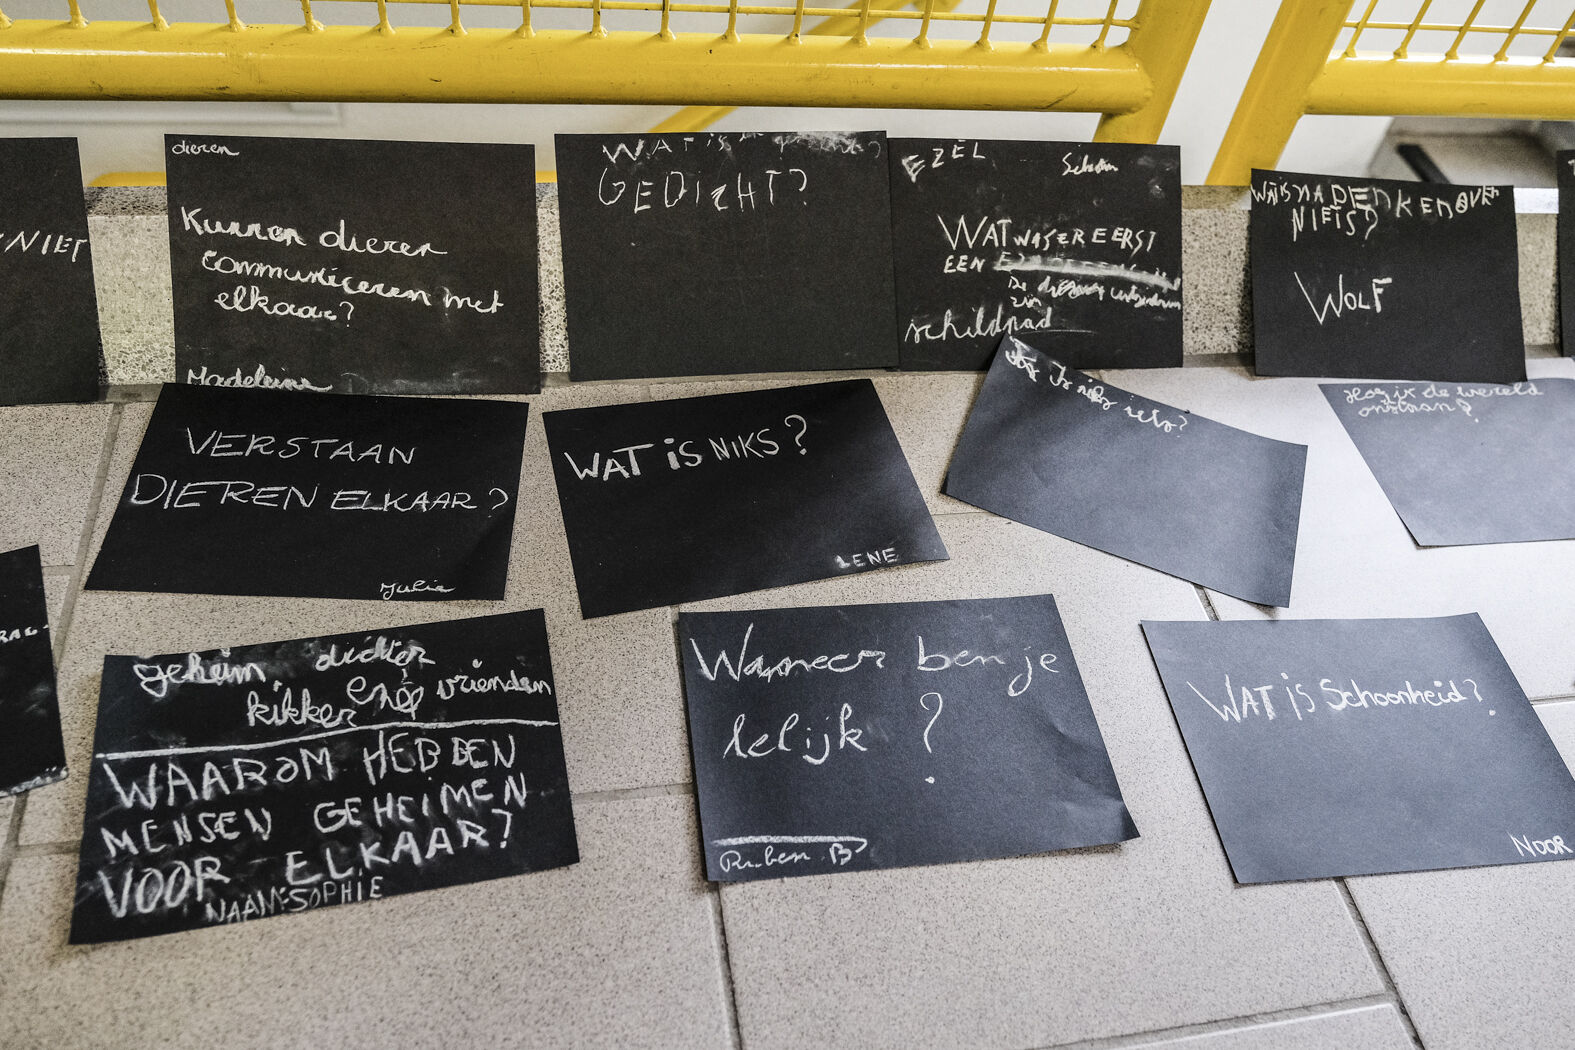 NIET
dieren
Kunnen dieren
communiceren met
elkaar?
Madeleine
WAT is
GEDICHT?
EZEL
WAT WAS ER EERST
EEN
De
schildpad
WAT IS NADENKEN OVER
NIETS?
WOLF
VERSTAAN
DIEREN ELKAAR?
Julie
WAT iS NIKS?
LENE
Is niks iets?
Hoe is de wereld
ontstaan?
geheim dichter
kikker en vrienden
WAAROM HEBBEN
MENSEN GEHEIMEN
VOOR ELKAAR?
NAAM:SOPHIE
Wanneer ben je
lelijk?
Ruben B
WAT iS Schoonheid?
NOOR